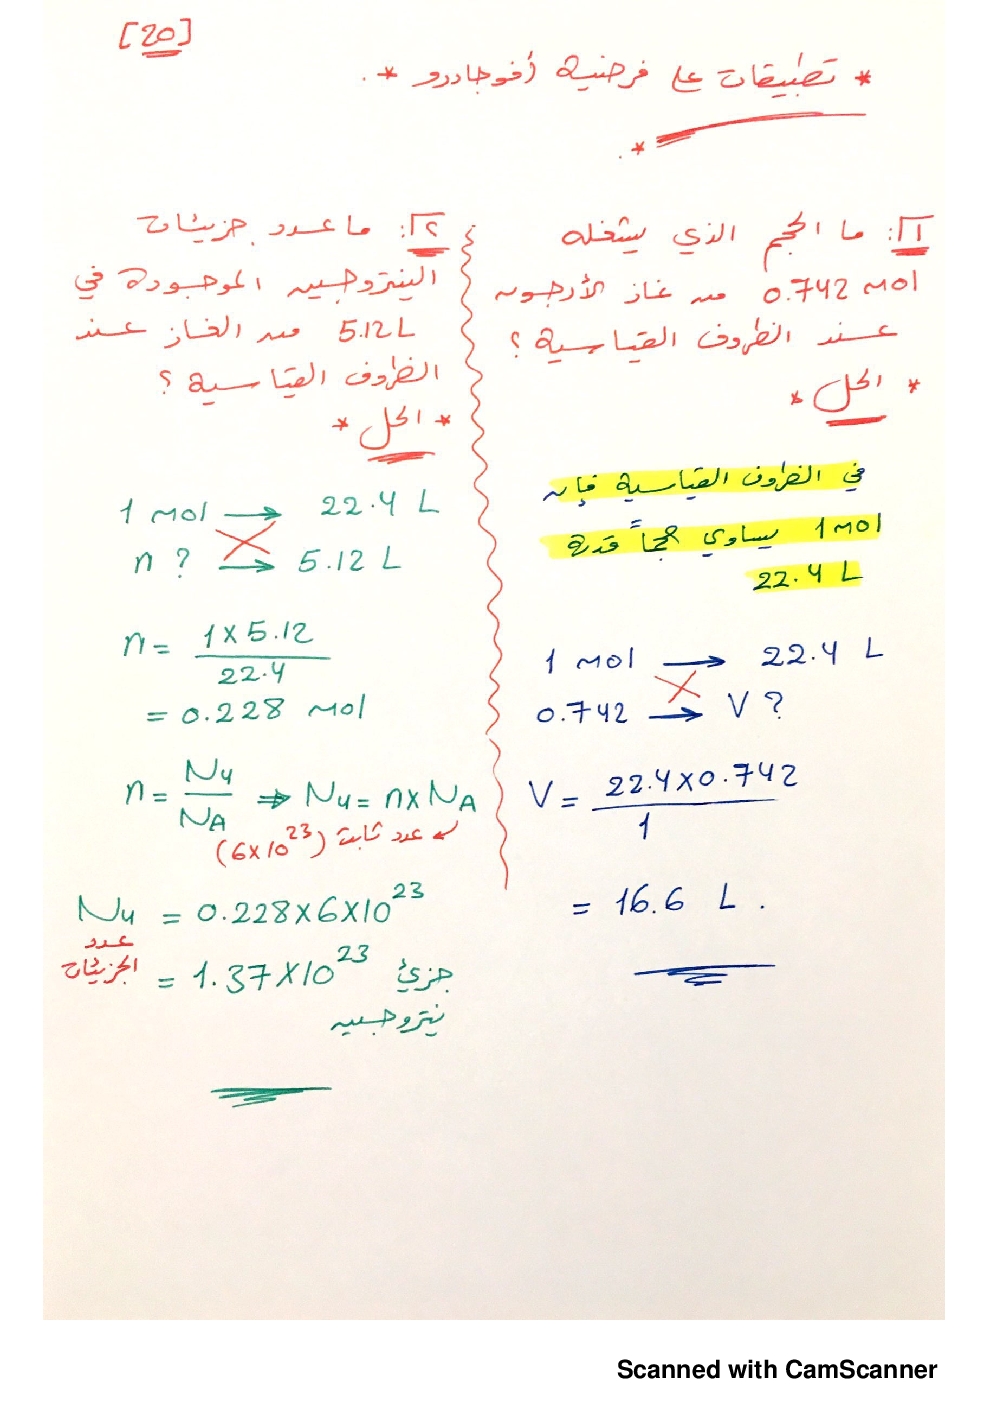 [20]
* تطبيقات على فرضية أفوجادرو *.
*.
١: ما الحجم الذي يشغله
0.742 mol من غاز الأرجون
عند الظروف القياسية ؟
* الحل *
في الظروف القياسية فإن
1 mol يساوي حجماً قدرة
22.4 L
1 mol → 22.4 L
0.742 → V ?
V = 22.4 × 0.742
1
= 16.6 L .
٢: ما عدد جزيئات
النيتروجين الموجودة في
5.12 L من الغاز عند
الظروف القياسية ؟
* الحل *
1 mol → 22.4 L
n ? → 5.12 L
n = 1 × 5.12
22.4
= 0.228 mol
n = Nu / NA ⇒ Nu = n × NA
عدد ثابت (6×10²³)
Nu = 0.228×6×10²³
عدد
الجزيئات
= 1.37×10²³ جزئ
نيتروجين
Scanned with CamScanner